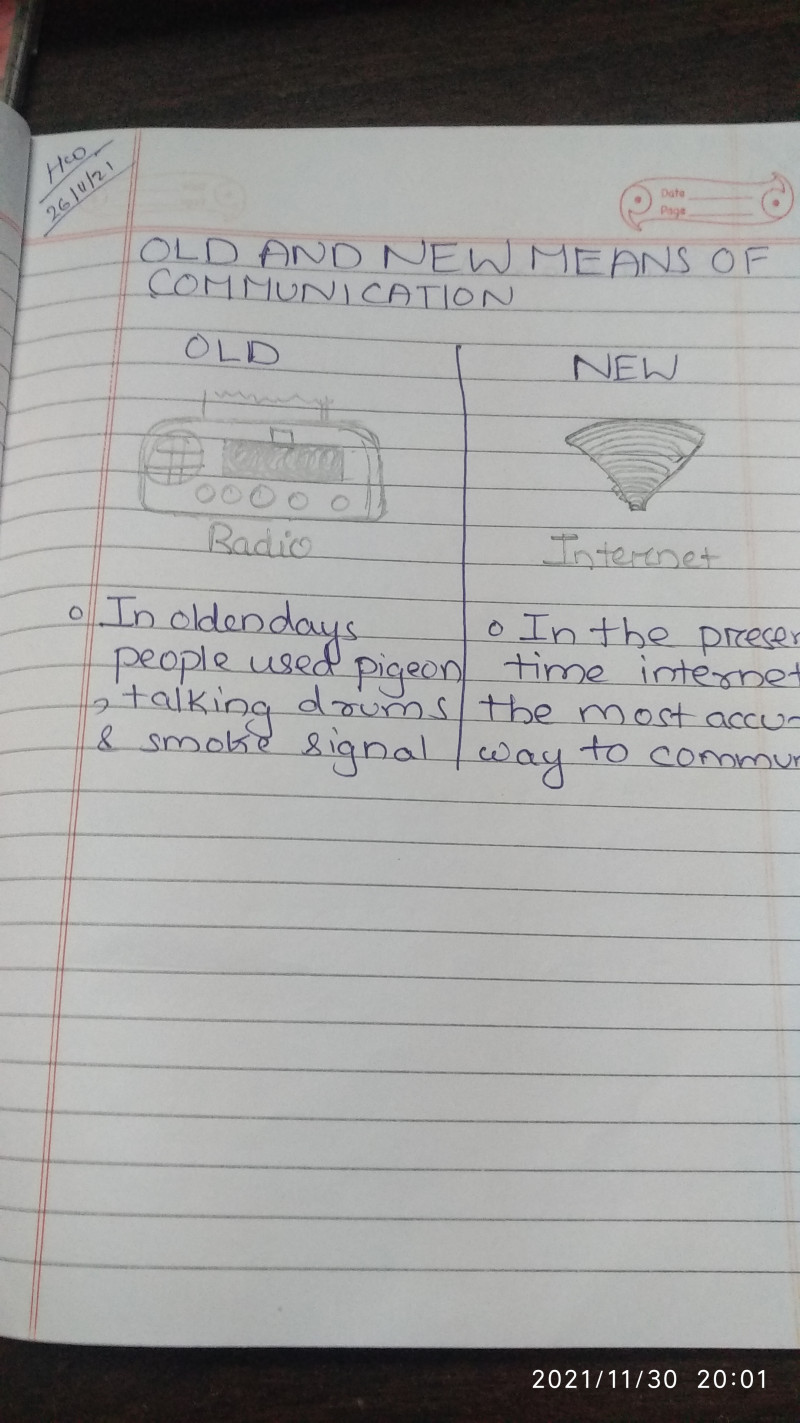 H.W
26/11/21
Date
Page
OLD AND NEW MEANS OF
COMMUNICATION
OLD
Radio
o In olden days
people used pigeon
, talking drums
& smoke signal
NEW
Internet
o In the presen
time internet
the most accu-
way to commun
2021/11/30 20:01